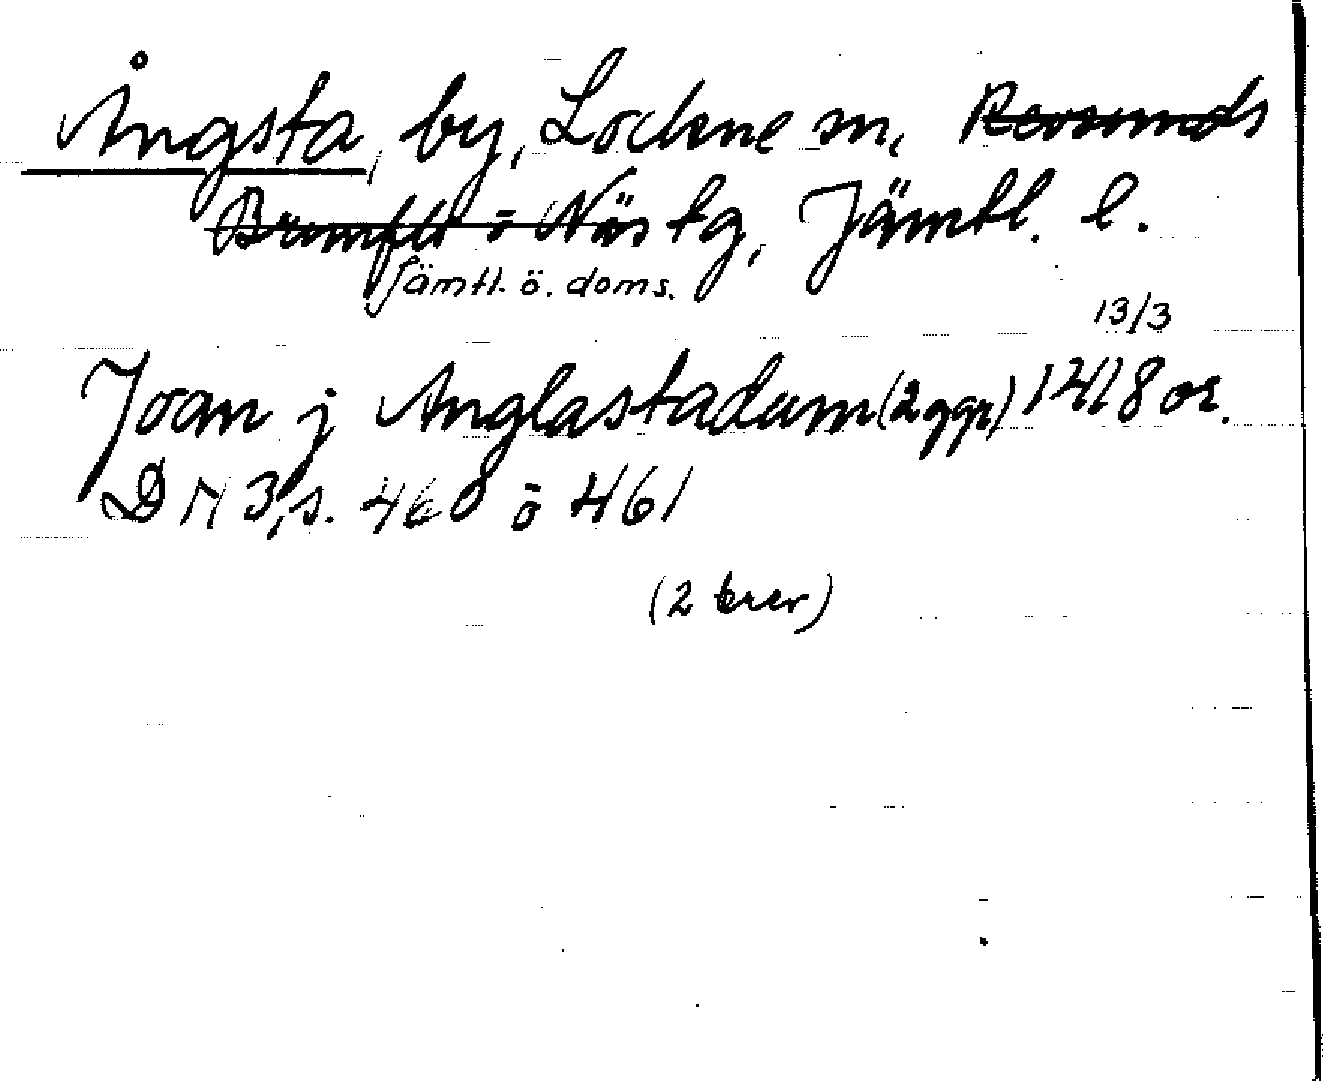 Ångsta, by, Lockne sn, Revsunds
Brunflo o Näs tg, Jämtl. l.
Jämtl. ö. doms.
13/3
Joan j Anglastadum (2 ggr) 1418 or.
DN 3, s. 460 o 461
(2 brev)